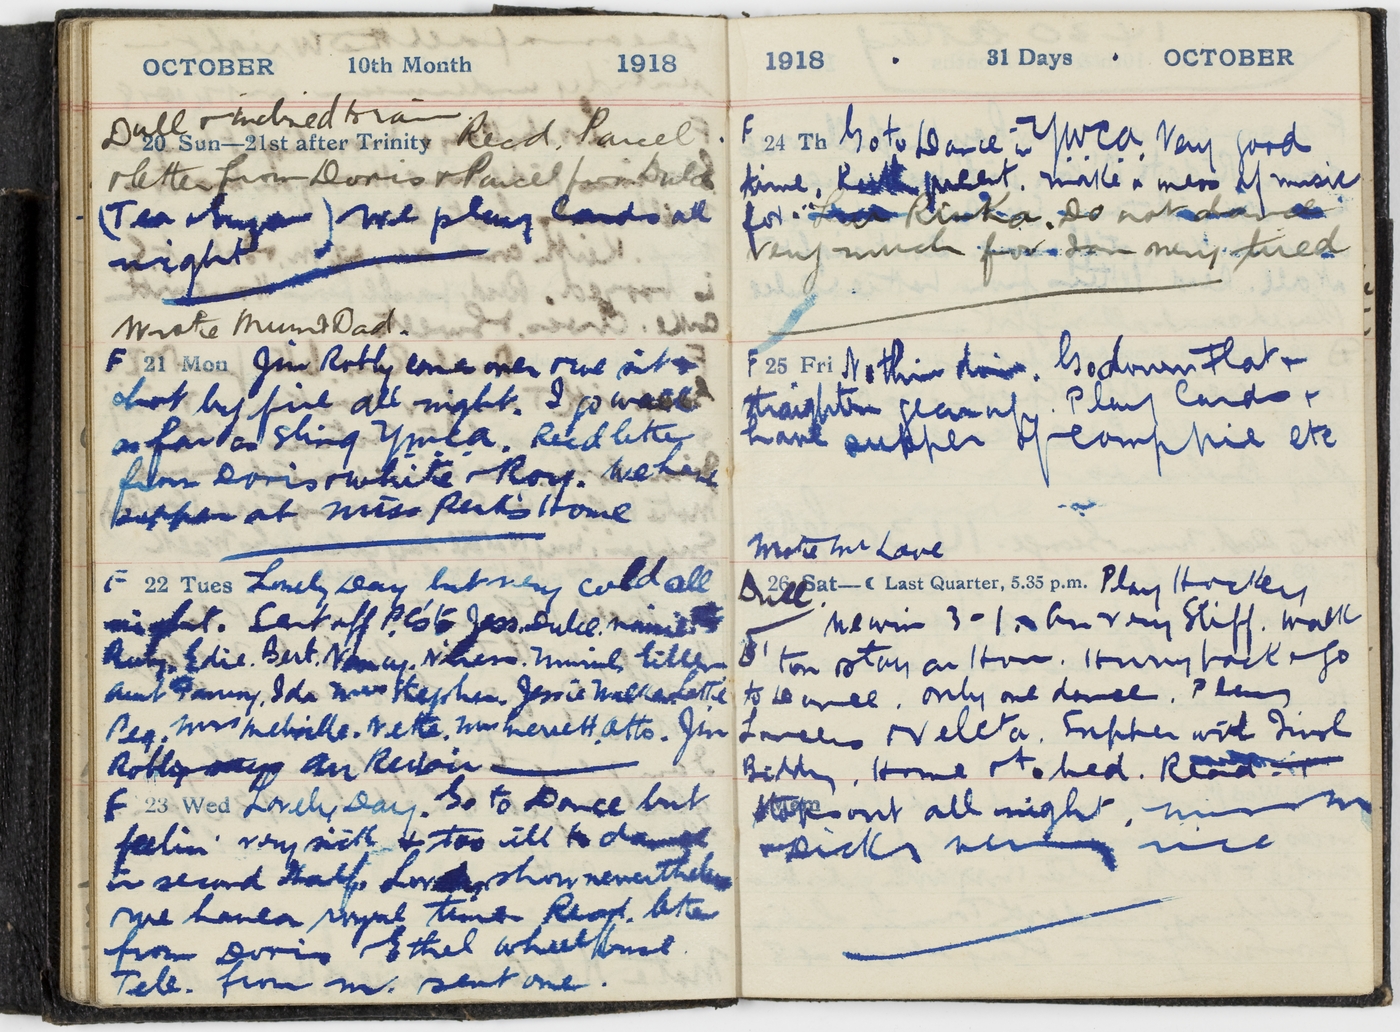 OCTOBER 10th Month 1918
Dull & inclined to rain
20 Sun—21st after Trinity Recd. Parcel
& letter from Doris & Parcel from Dulc
(Tea & Sugar) We play cards all
night
Wrote Mum & Dad.
F 21 Mon Jim Robly comes over & we sit &
chat by fire all night. I go walk
as far as Sling Ymca. Recd letter
from Doris & White & Roy. We have
supper at Miss Perks Home
F 22 Tues Lovely Day but very cold all
night. Sent off P.Cs to Jess. Dulce.
Ruby. Edie. Bert. Nancy. Muriel Eileen
Aunt Fanny, Ida Mrs Stephen. Jessie
Peg. Mrs Melville. Nette. Mrs Merrett. Otto. Jim
Robly
F 23 Wed Lovely Day. Go to Dance but
feelin' very sick & too ill to dance
in second Half. Lovely show nevertheless
we have a royal time. Recd. letter
from Doris & Ethel Wheelhouse.
Tele. from m. sent one.
1918 · 31 Days · OCTOBER
F 24 Th Go to Dance in Ymca. Very good
time. Ruth present. make a mess of music
for "La Rinka. Do not dance
very much for I am very tired
F 25 Fri Nothin doin. Go down Flat &
straighten gear up. Play Cards &
have supper of comp pie etc
Wrote Mr Love
Dull. 26 Sat—☾ Last Quarter, 5.35 p.m. Play Hockey
we win 3-1. Am very Stiff. Walk
B'ton & stay an Hour. Hurry back & Go
to Dance, only one dance. Play
Lancers & Veleta. Supper with
Biddy. Home & to bed. Read
out all night,
Dicks nice